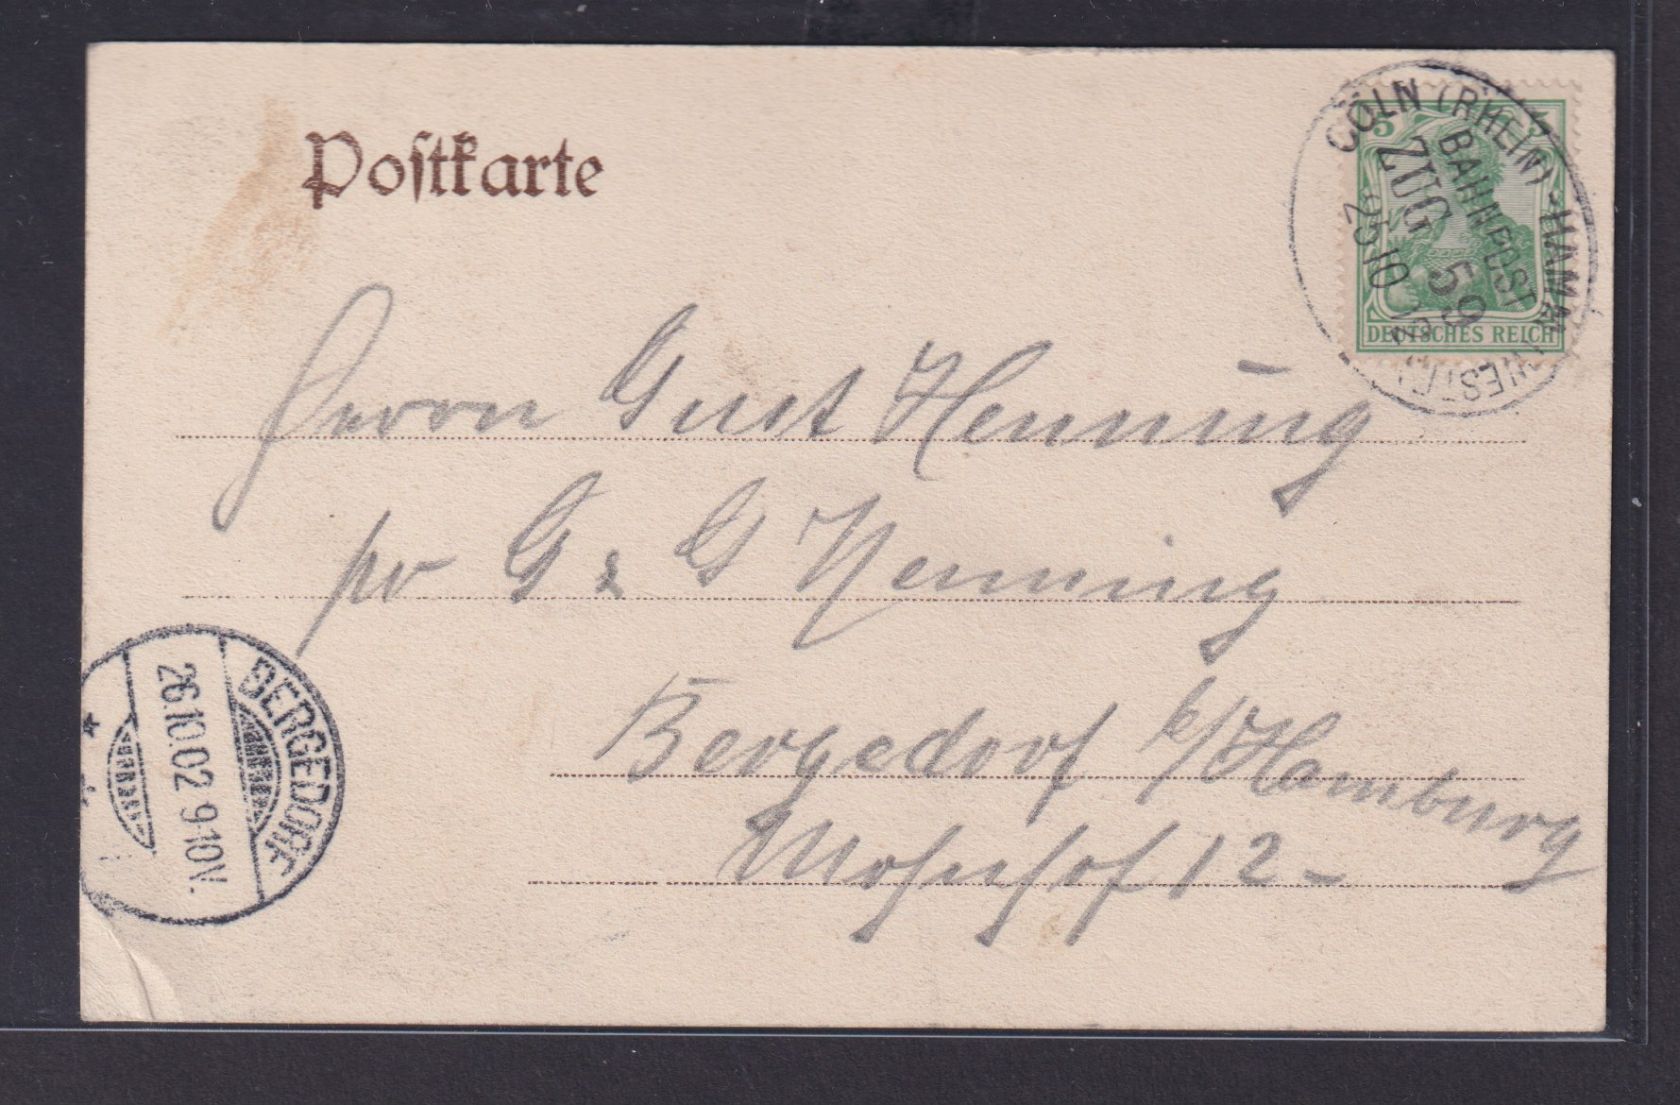 Postkarte
CÖLN (RHEIN)-HAMM (WESTF.)
BAHNPOST
ZUG 59
25 10 02
5
DEUTSCHES REICH
Herrn Gust Henning
pr G & G Henning
Bergedorf b/Hamburg
12
BERGEDORF
26.10.02 9-10V.